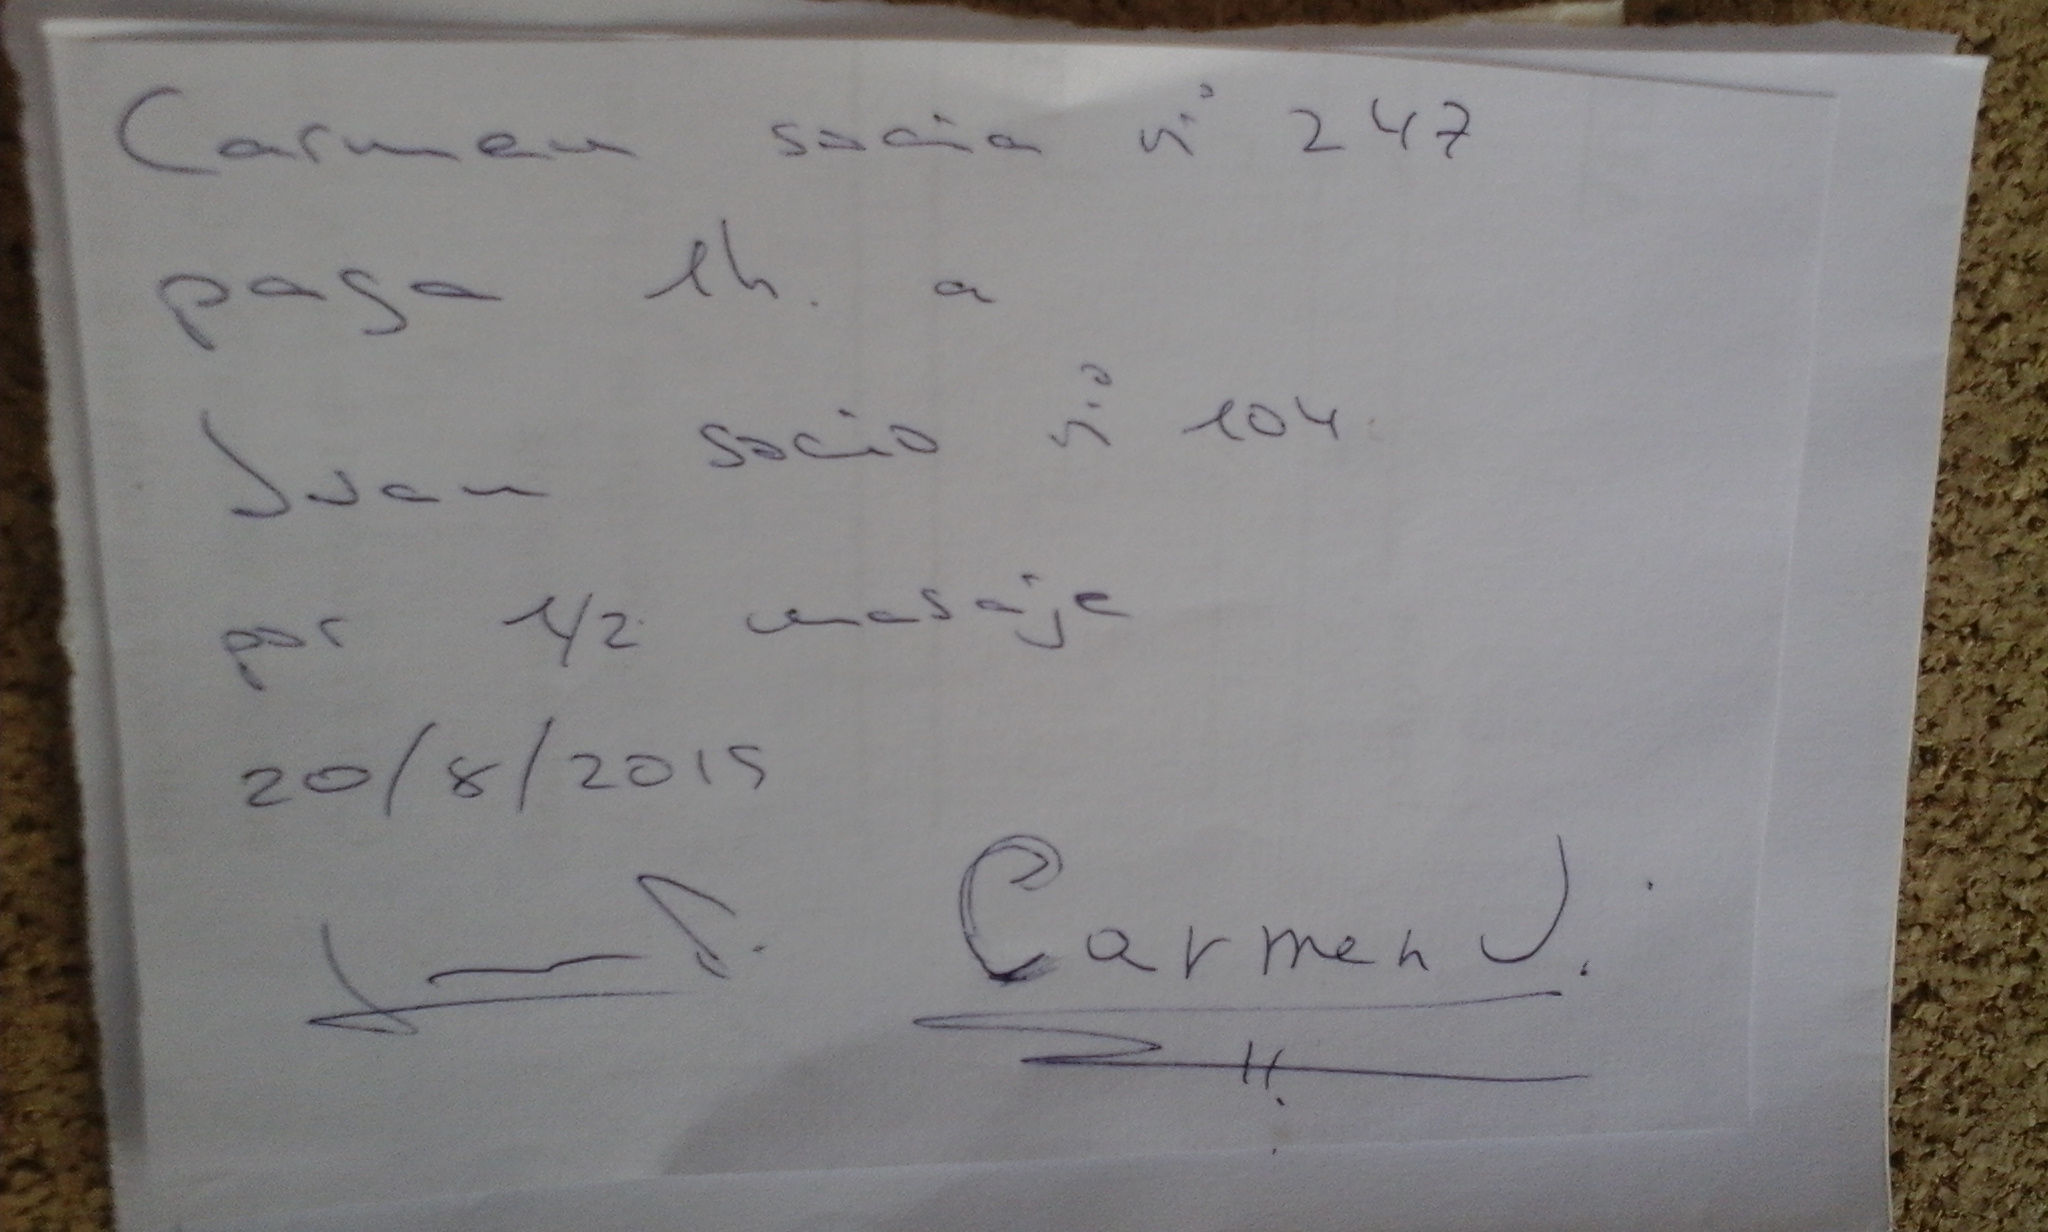 Carmen socia nº 247
paga 1h. a
Juan socio nº 104
por 1/2 masaje
20/8/2015
Carmen J.